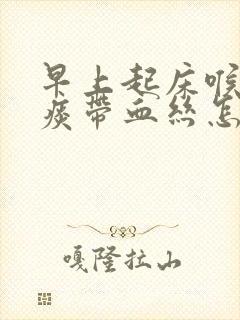 早上起床喉
痰带血丝怎
嘎隆拉山